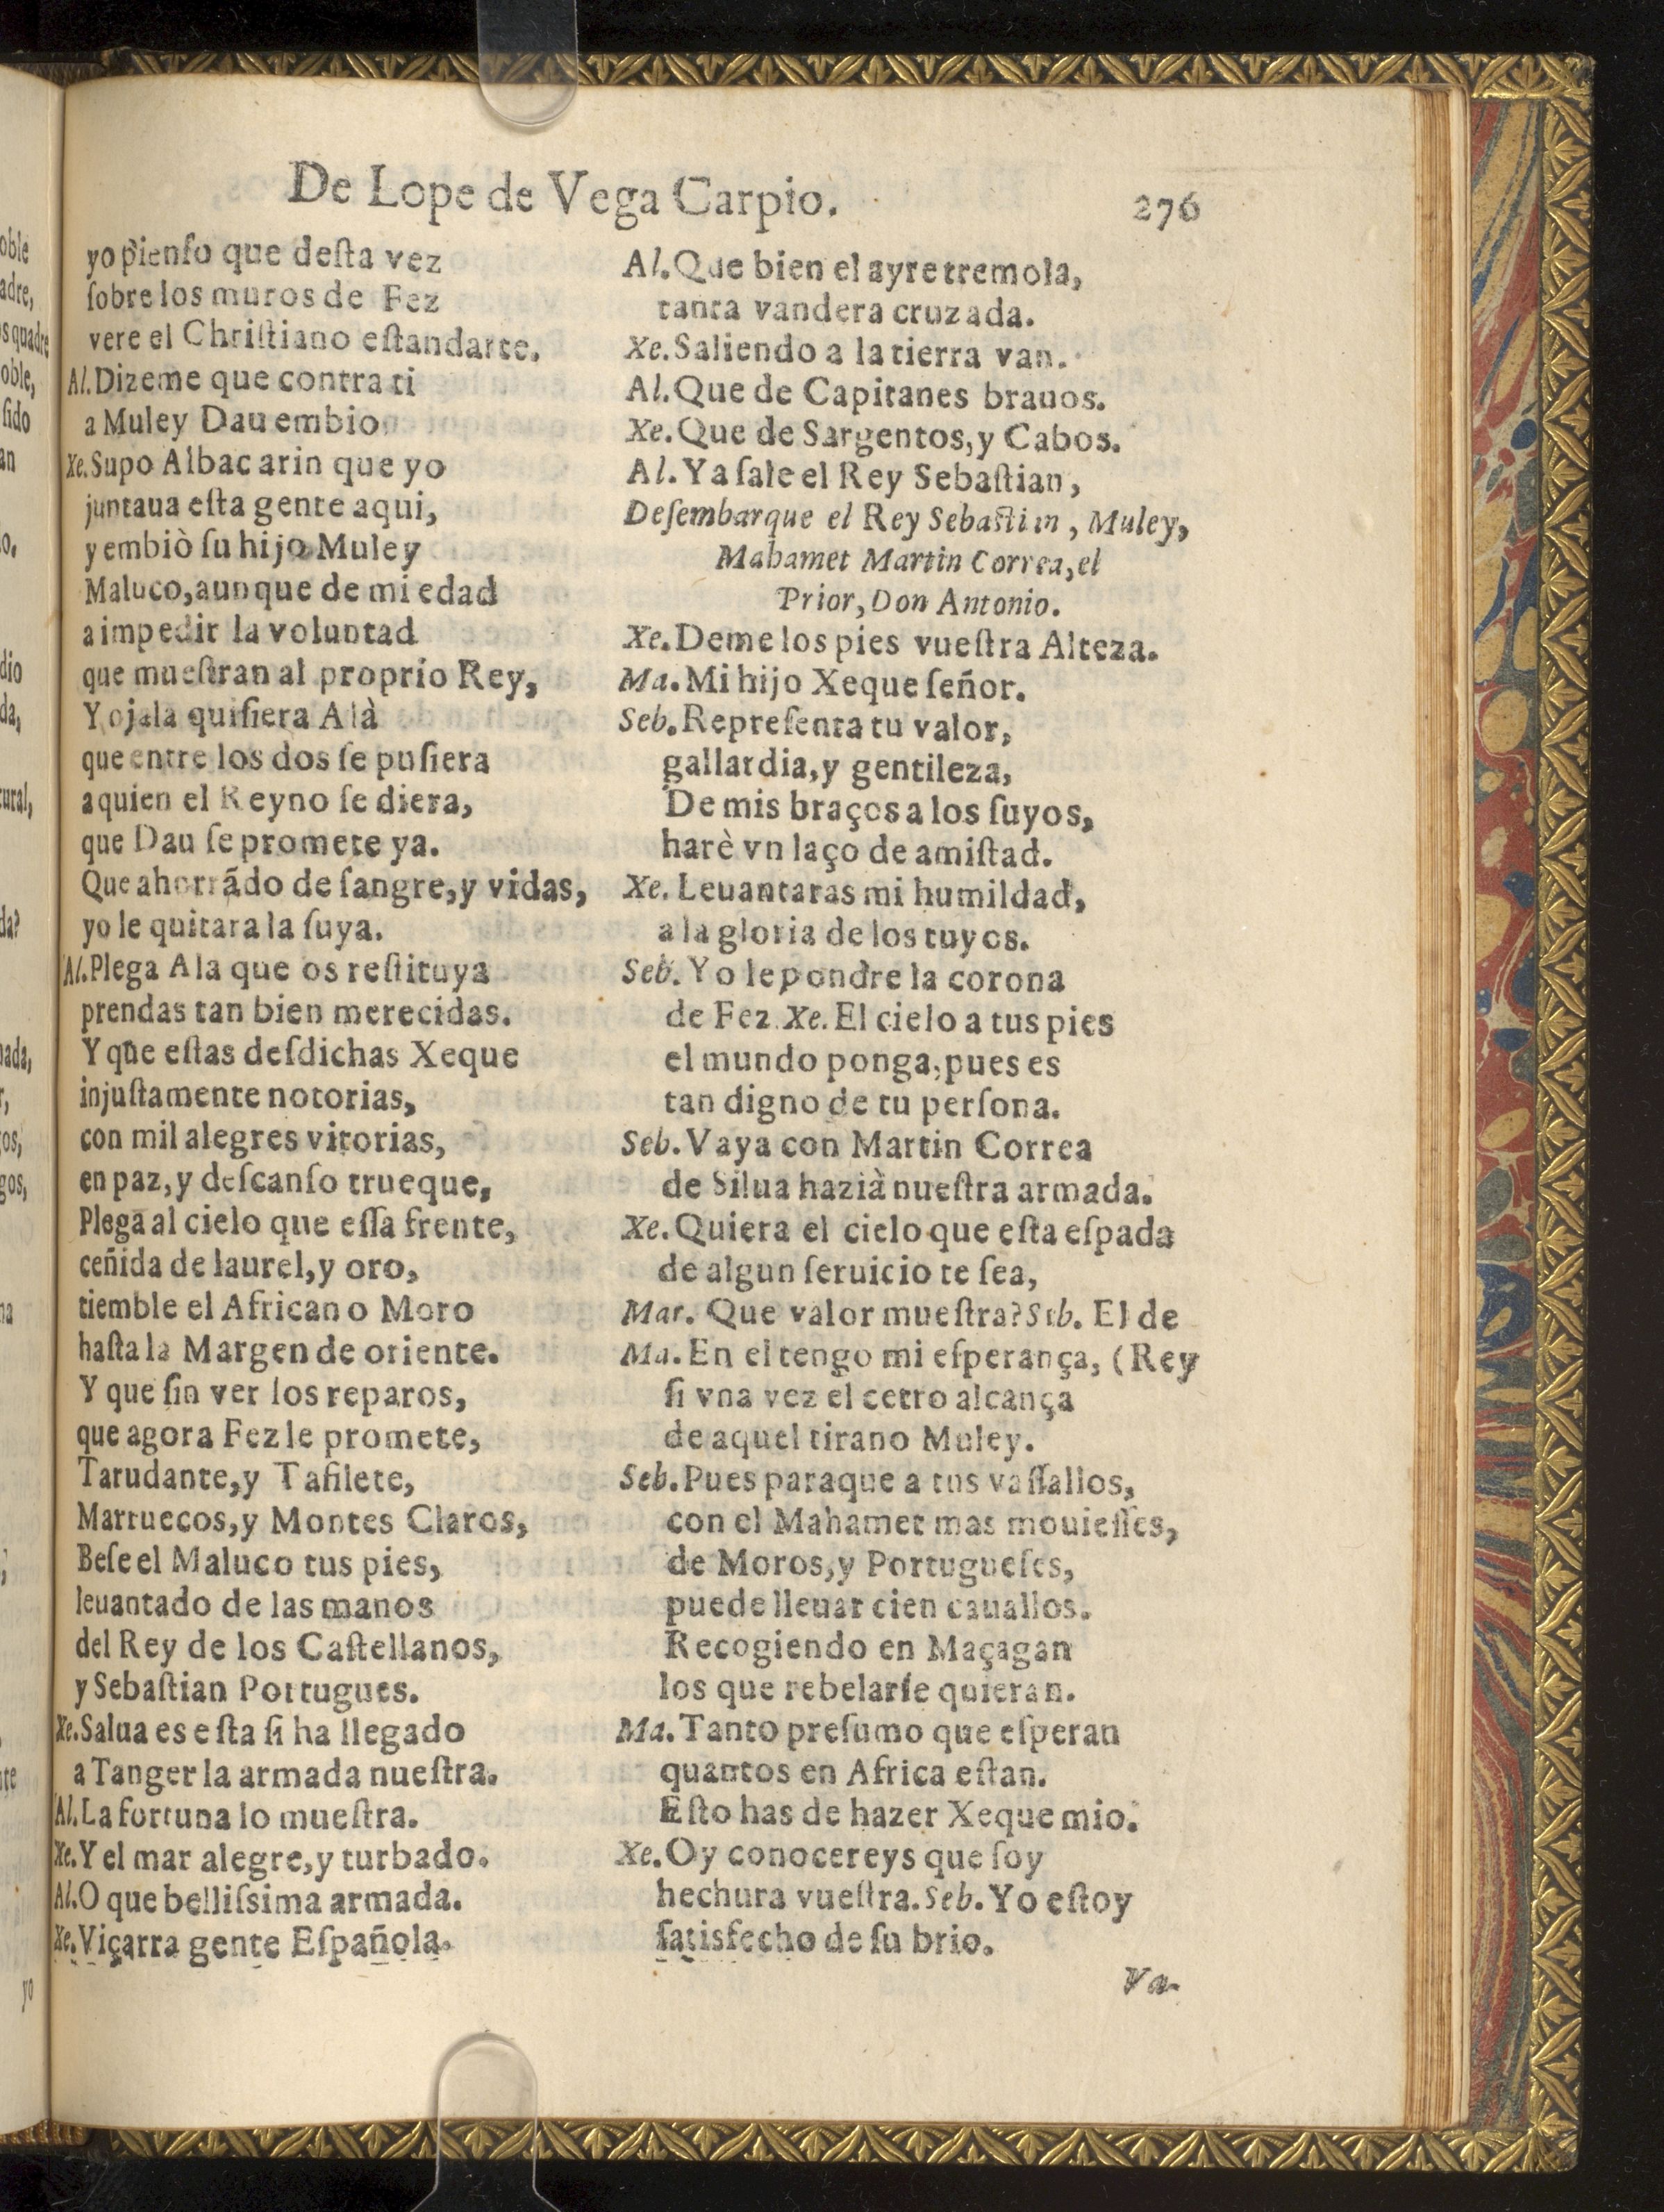 De Lope de Vega Carpio.
276
yo pienſo que deſta vez
ſobre los muros de Fez
vere el Chriſtiano eſtandarte.
Al. Dizeme que contra ti
a Muley Dau embio
Xe. Supo Albacarin que yo
juntaua eſta gente aqui,
y embiò ſu hijo Muley
Maluco, aunque de mi edad
a impedir la voluntad
que mueſtran al proprio Rey,
Y ojala quiſiera Alà
que entre los dos ſe puſiera
a quien el Reyno ſe diera,
que Dau ſe promete ya.
Que ahorrãdo de ſangre, y vidas,
yo le quitara la ſuya.
Al. Plega Ala que os reſtituya
prendas tan bien merecidas.
Y que eſtas deſdichas Xeque
injuſtamente notorias,
con mil alegres vitorias,
en paz, y deſcanſo trueque,
Plega al cielo que eſſa frente,
ceñida de laurel, y oro,
tiemble el Africano Moro
haſta la Margen de oriente.
Y que ſin ver los reparos,
que agora Fez le promete,
Tarudante, y Tafilete,
Marruecos, y Montes Claros,
Beſe el Maluco tus pies,
leuantado de las manos
del Rey de los Caſtellanos,
y Sebaſtian Portugues.
Xe. Salua es eſta ſi ha llegado
a Tanger la armada nueſtra.
Al. La fortuna lo mueſtra.
Xe. Y el mar alegre, y turbado.
Al. O que belliſsima armada.
Xe. Viçarra gente Eſpañola.
Al. Que bien el ayre tremola,
tanta vandera cruzada.
Xe. Saliendo a la tierra van.
Al. Que de Capitanes brauos.
Xe. Que de Sargentos, y Cabos.
Al. Ya ſale el Rey Sebaſtian,
Deſembarque el Rey Sebaſtian, Muley,
Mahamet Martin Correa, el
Prior, Don Antonio.
Xe. Deme los pies vueſtra Alteza.
Ma. Mi hijo Xeque ſeñor.
Seb. Repreſenta tu valor,
gallardia, y gentileza,
De mis braços a los ſuyos,
harè vn laço de amiſtad.
Xe. Leuantaras mi humildad,
a la gloria de los tuyos.
Seb. Yo le pondre la corona
de Fez. Xe. El cielo a tus pies
el mundo ponga, pues es
tan digno de tu perſona.
Seb. Vaya con Martin Correa
de Silua hazià nueſtra armada.
Xe. Quiera el cielo que eſta eſpada
de algun ſeruicio te ſea,
Mar. Que valor mueſtra? Seb. El de
Ma. En el tengo mi eſperança, (Rey
ſi vna vez el cetro alcança
de aquel tirano Muley.
Seb. Pues paraque a tus vaſſallos,
con el Mahamet mas mouieſſes,
de Moros, y Portugueſes,
puede lleuar cien cauallos.
Recogiendo en Maçagan
los que rebelarſe quieran.
Ma. Tanto preſumo que eſperan
quantos en Africa eſtan.
Eſto has de hazer Xeque mio.
Xe. Oy conocereys que ſoy
hechura vueſtra. Seb. Yo eſtoy
ſatisfecho de ſu brio.
Va-